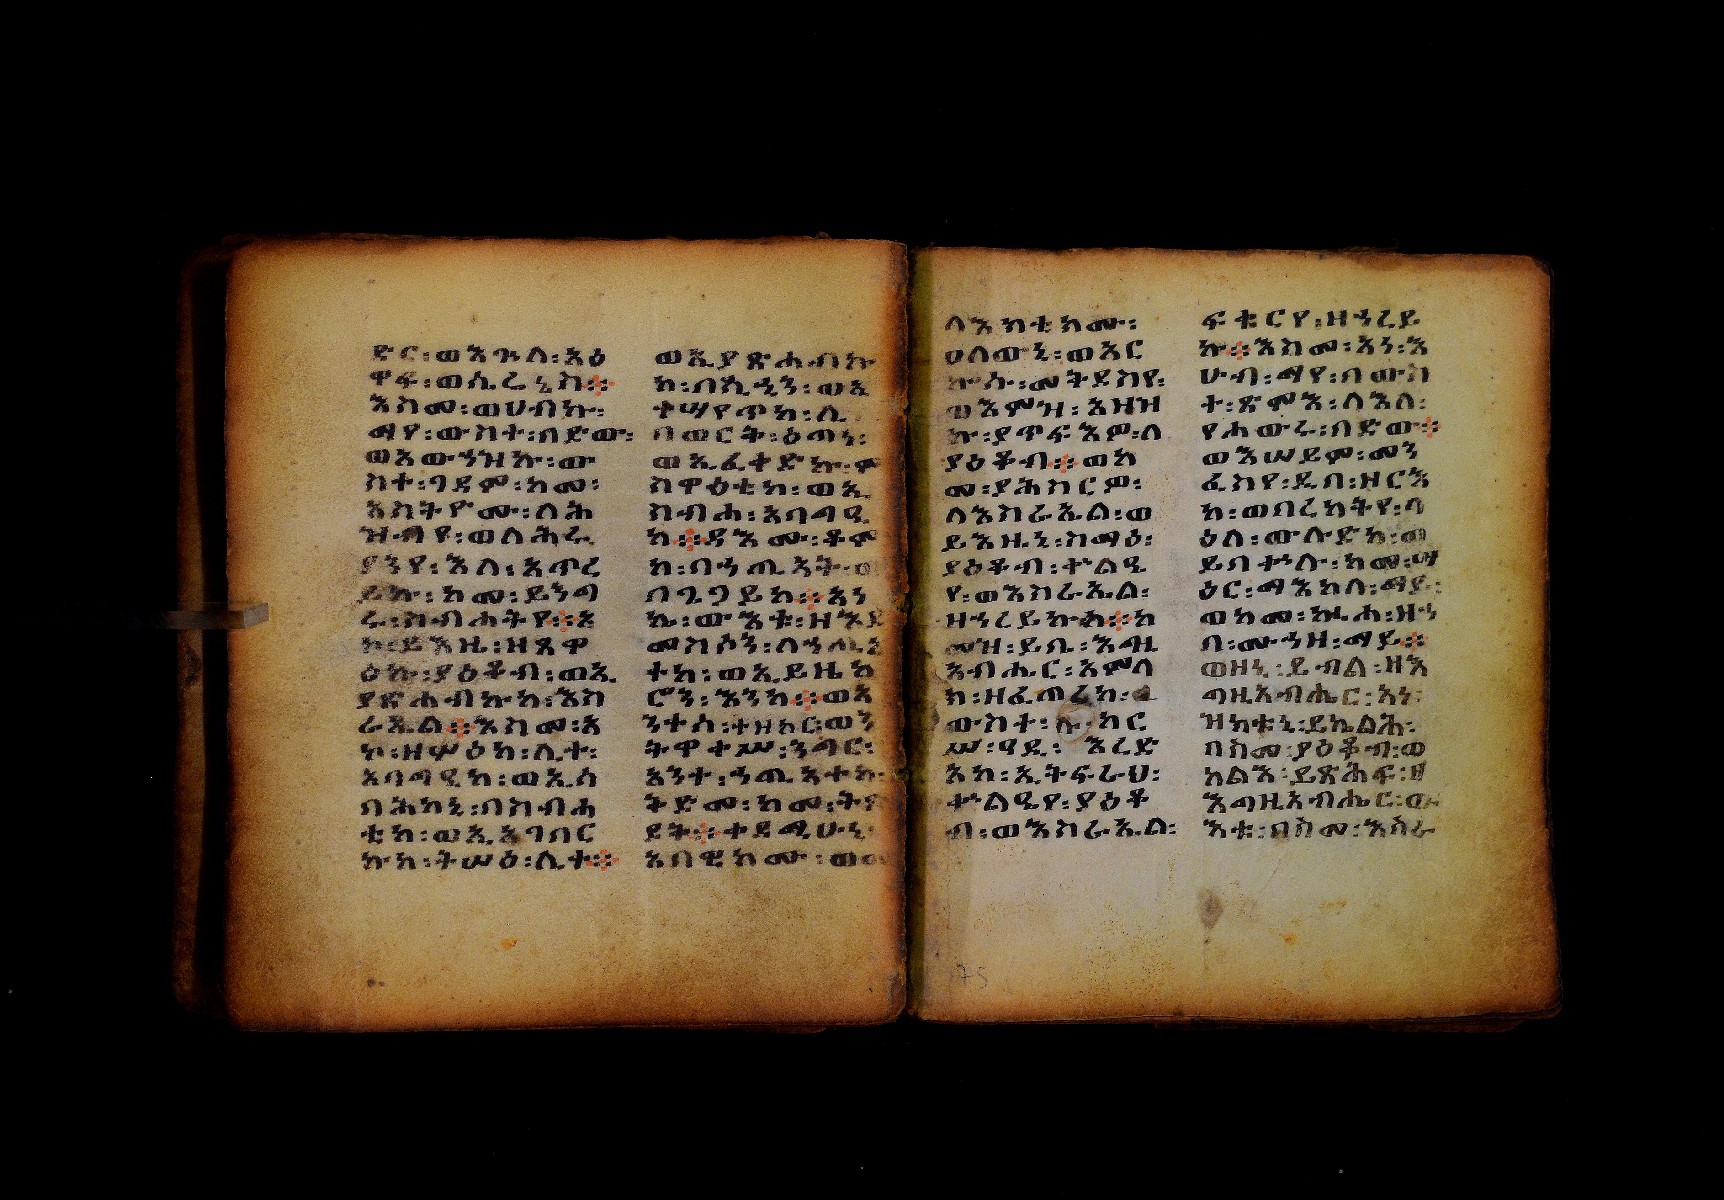 ድር፡ወእጓለ፡አዕ
ዋፍ፡ወሲሬኔስ፨
እስመ፡ወሀብኩ፡
ማየ፡ውስተ፡በድው፡
ወአውኀዝኩ፡ው
ስተ፡ገዳም፡ከመ፡
እስትዮሙ፡ለሕ
ዝብየ፡ወለሕሩ
ያንየ፡እለ፡አጥረ
ይኩ፡ከመ፡ይንግ
ሩ፡ስብሐትየ፨አ
ኮ፡ይእዜ፡ዘጸዋ
ዕኩ፡ያዕቆብ፡ወኢ
ያጽሐብኩከ፡እስ
ራኤል፨እስመ፡አ
ኮ፡ዘሦዕከ፡ሊተ፡
አባግዒከ፡ወኢሰ
ባሕከኒ፡በስብሐ
ቲከ፡ወኢአገበር
ኩከ፡ትሡዕ፡ሊተ፨
ወኢያጽሐብኩ
ከ፡በኢዲን፡ወኢ
ተሣየጥከ፡ሊ
በወርት፡ዕጣነ፡
ወኢፈተድኩ፡ሥ
ስዋዕቲከ፡ወኢ
ስብሐ፡አባግዒ
ከ፨ዳእሙ፡ቆም
ከ፡በኀጢአት፡ወ
በጌጋይከ፨አነ
ኬ፡ውእቱ፡ዘእደ
መስሶን፡ለኀጢአ
ተከ፡ወኢይዜከ
ሮን፡እንከ፨ወአ
ንተሰ፡ተዘከር፡ወን
ትዋቀሥ፡ንግር፡
አንተ፡ኀጢአተከ፡
ትድመ፡ከመ፡ትጽ
ደቅ፨ቀደሚሁኒ፡
አበዊክሙ፡ወመ
ላእክቲክሙ፡
ሀለውኒ፡ወአር
ኩሱ፡መቅደስየ፡
ወእምዝ፡አዘዝ
ኩ፡ያጥፍእዎ፡ለ
ያዕቆብ፨ወከ
መ፡ያሕስርዎ፡
ለእስራኤል፡ወ
ይእዜኒ፡ስማዕ፡
ያዕቆብ፡ቍልዔ
የ፡ወእስራኤል፡
ዘኀረይኩከ፨ከ
መዝ፡ይቤ፡እግዚ
አብሔር፡አምላ
ከ፡ዘፈጠረከ፡
ውስተ፡ ከር
ሠ፡ዋዲ፡ እረድ
አከ፡ኢትፍራህ፡
ቍልዔየ፡ያዕቆ
ብ፡ወእስራኤል፡
ፍቁርየ፡ዘኀረይ
ኩ፨እስመ፡አነ፡እ
ሁብ፡ማየ፡በውስ
ተ፡ጽምእ፡ለእለ፡
የሐውሩ፡በድው፨
ወእሠይም፡መን
ፈስየ፡ዲበ፡ዘርእ
ከ፡ወበረከትየ፡ላ
ዕለ፡ውሉድከ፡ወ
ይበቍሉ፡ከመ፡ሣ
ዕር፡ማእከለ፡ማይ፡
ወከመ፡ኲሐ፡ዘኀ
በ፡ሙኀዘ፡ማይ፨
ወዘኒ፡ይብል፡ዘእ
ግዚአብሔር፡አነ፡
ዝክቱኒ፡ይኬልሕ፡
በስመ፡ያዕቆብ፡ወ
ከልእ፡ይጽሕፍ፡ዘ
እግዚአብሔር፡ው
እቱ፡በስመ፡እስራ
75